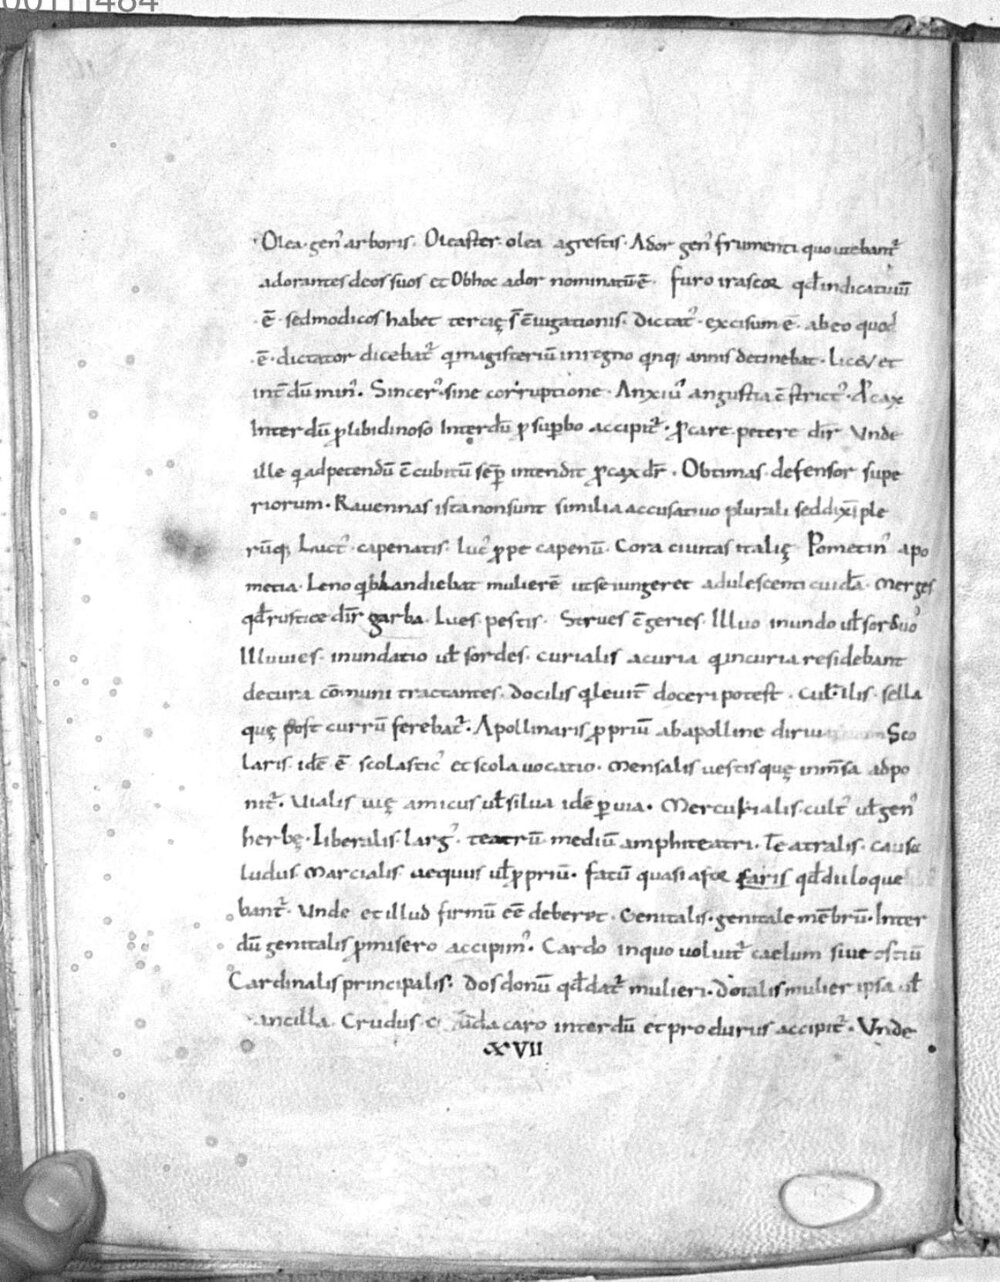 Olea· gen᾽ arboris· Oleaster· olea agrestis· Ador gen᾽ frumenti quo utebant᷑
adorantes deos suos et Obhoc ador nominatū ē· furo irascor qd̄ indicatiuū
·ē· sed modicos habet tercię
·ē· dictator dicebat᷑ q magisteriū in regno qnq; annis detinebat· Licet/ et
int̄dū min᾽· Sincer᾽· sine corruptione· Anxiu᾽ angustia ē strict᾽·
Interdū ꝓ libidinoso Interdū ꝓ supbo accipit᷑· ꝓcare petere dīr Vnde
ille q ad petendū ē cubitū sēp intendit ꝓcax dr̄· Obtimas· defensor supe
riorum· Rauennas ista non sunt similia accusatiuo plurali sed dixi ple
rūq; Luct᾽· capenatis· luc᾽ ꝓpe capenū· Cora ciuitas italię Pometin᾽ apo
metia· Leno q blandiebat mulierē ut se iungeret adulescenti cuidā· merges
qd̄ rustice dīr garba· Lues· pestis· Strues ē geries· Illuo inundo ut̄ sorduo᾽
Illuuies· inundatio ut̄ sordes· curialis a curia q in curia residebant
decura cōmuni tractantes· Docilis q leuit᷑ doceri potest· sella
quę post currū ferebat᷑· Apollinaris ꝓpriū ab apolline Sco
laris· idē ē scolastic᾽ et scola uocatio· mensalis uestis quę in m̄sa adpo
nit᷑· Vialis uię amicus ut̄ silua idē ꝑ uia· Mercurialis· cult᾽ ut̄ gen᾽
herbę· Liberalis· larg᾽· teatrū· mediū amphiteatri· Teatralis· causa
ludus· Marcialis aequus ut̄ ꝓpriū· fatū quasi a for faris qd̄ du loque
bant᷑· Vnde et illud firmū eē deberet· Genitalis· genitale mēbrū· Inter
dū genitalis ꝓ misero accipim᾽· Cardo in quo uoluit᷑ caelum siue ostiū
Cardinalis principalis· Dos donū qd̄ dat᷑ mulieri· Dotalis mulier ipsa ut̄
ancilla· Crudus caro interdū et pro durus accipit᷑· Vnde
XVII